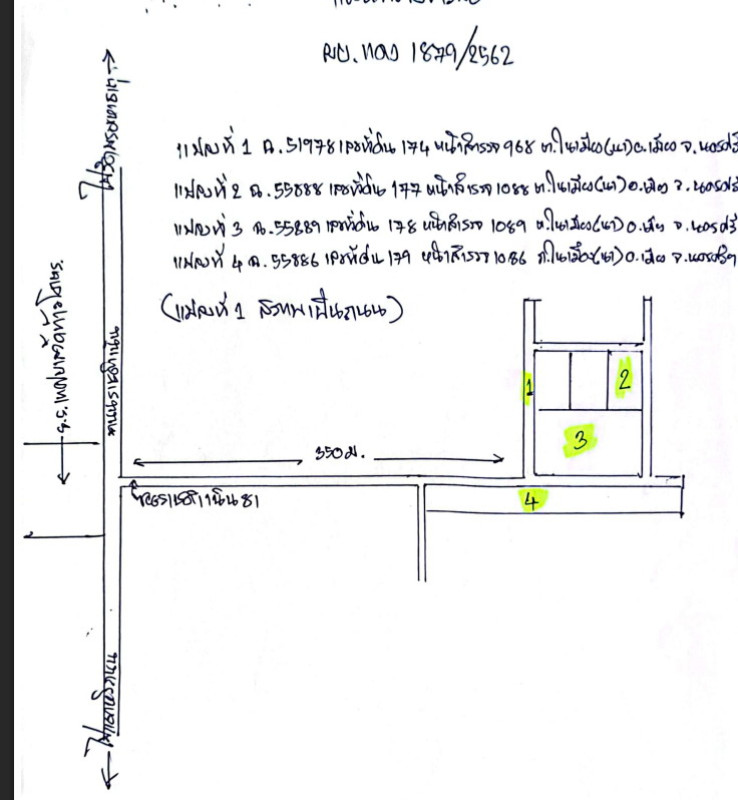 ผบ.แดง 1879/2562
แปลงที่ 1 ฉ.51978 เลขที่ดิน 174 หน้าสำรวจ 968 ต.ในเมือง(นา) อ.เมือง จ.นครศรี
แปลงที่ 2 ฉ.55888 เลขที่ดิน 177 หน้าสำรวจ 1088 ต.ในเมือง(นา) อ.เมือง จ.นครศรี
แปลงที่ 3 ฉ.55889 เลขที่ดิน 178 หน้าสำรวจ 1089 ต.ในเมือง(นา) อ.เมือง จ.นครศรี
แปลงที่ 4 ฉ.55886 เลขที่ดิน 179 หน้าสำรวจ 1086 ต.ในเมือง(นา) อ.เมือง จ.นครศรีฯ
(แปลงที่ 1 สภาพเป็นถนน)
ไปวัดพระมหาธาตุ
ถนนราชดำเนิน
350 ม.
ซอยราชดำเนิน 81
1
2
3
4